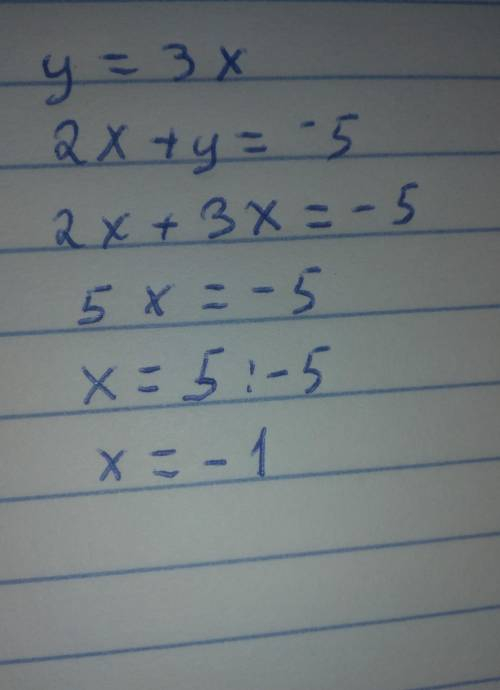 y = 3x
2x + y = -5
2x + 3x = -5
5x = -5
x = 5 : -5
x = -1